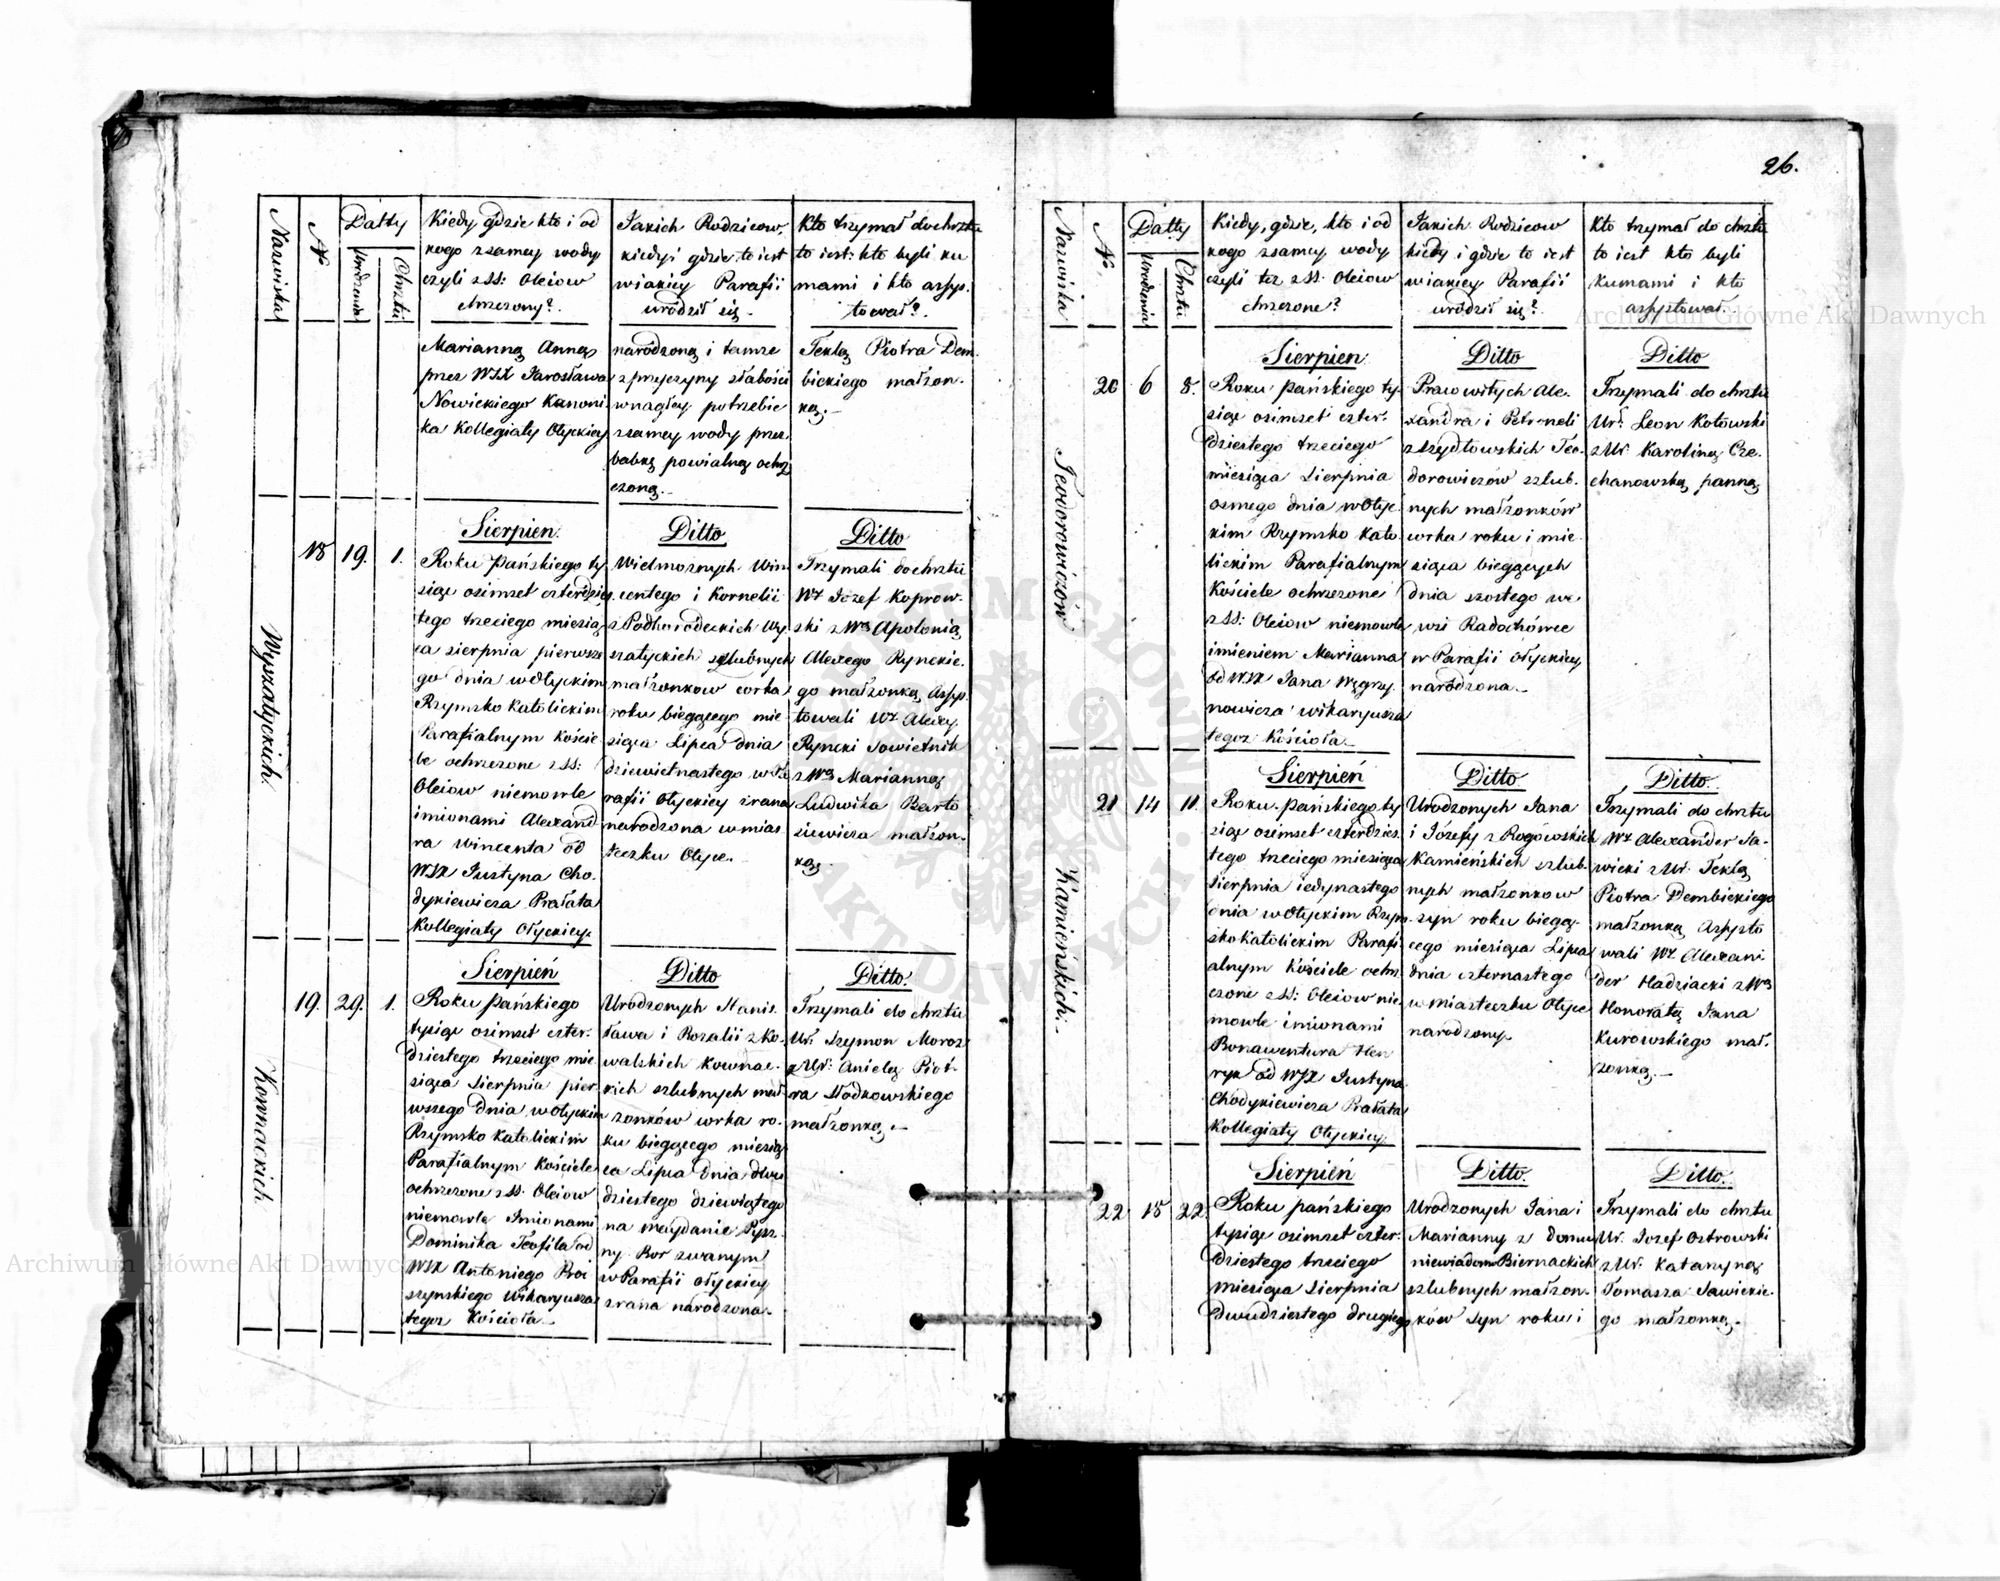 26.
Nazwiska
N°
Datty
Urodzenia
Chrztu
Kiedy gdzie kto i od
kogo z samey wody
czyli z SS: Oleiow
chrzczony?
Jakich Rodzicow,
kiedy i gdzie to iest
w iakiey Parafii
urodził się.
Kto trzymał do chrztu
to iest: kto byli ku
mami i kto assys.
tował?
Marianną Anną
przez WJX Jarosława
Nowickiego Kanoni
ka Kollegiaty Ołyckiey
narodzoną i tamze
z przyczyny słabości
w nagłey potrzebie
z samey wody przez
babkę powialną ochrz
czoną.
Teklą Piotra Dem.
bickiego małzon.
ką.
Wyszatyckich.
18 19. 1.
Sierpien.
Roku Pańskiego ty
siąc osimset czterdzies
tego trzeciego miesią
ca sierpnia pierwsze
go dnia w Ołyckim
Rzymsko Katolickim
Parafialnym Koście
le ochrzczone z SS:
Oleiow niemowle
imionami Alexand
ra Wincenta od
WJX Justyna Cho.
dykiewicza Prałata
Kollegiaty Ołyckiey.
Ditto
Wielmoznych Win
centego i Kornelii
z Podhorodeckich Wy
szatyckich szlubnych
małzonkow corka
roku biegącego mie
siąca Lipca dnia
dziewietnastego w Pa
rafii Ołyckiey zrana
narodzona w mias
teczku Ołyce.
Ditto
Trzymali do chrztu
Wz Jozef Koprow-
ski z Wą Apolonią
Alexego Rynckie.
go małzonką, Assys
towali Wz Alexy
Ryncki Sowietnik
z Wą Marianną
Ludwika Barto
siewicza małzon.
ką.
Kownackich.
19. 29. 1.
Sierpień
Roku Pańskiego
tysiąc osimset czter.
dziestego trzeciego mie
siąca Sierpnia pier
wszego dnia w Ołyckim
Rzymsko Katolickim
Parafialnym Kościele
ochrzczone z SS. Oleiow
niemowle Imionami
Dominika Teofila od
WJX Antoniego Proi
szynskiego Wikaryusza
tegoz Kościoła
Ditto
Urodzonych Stanis.
ława i Rozalii z Ko.
walskich Kownac.
kich szlubnych mał
zonków corka ro.
ku biegącego miesią
ca Lipca dnia dwu
dziestego dziewiątego
na maydanie
ny Bor zwanym
w Parafii Ołyckiey
zrana narodzona.
Ditto.
Trzymali do chrztu
Ur. Szymon Moroz
z Ur: Anielą Piot-
ra Słodkowskiego
małzonką.
Nazwiska
N°
Datty
Urodzenia
Chrztu
Kiedy, gdzie, kto i od
kogo z samey wody
czyli tez z SS: Oleiow
chrzczone?
Jakich Rodzicow
kiedy i gdzie to iest
w iakiey Parafii
urodził się?
Kto trzymał do chrztu
to iest kto byli
kumami i kto
assystował.
Teodorowiczów
20 6 8.
Sierpien
Roku Pańskiego ty.
siąc osimset czter.
dziestego trzeciego
miesiąca Sierpnia
osmego dnia w Ołyc
kim Rzymsko Kato
lickim Parafialnym
Kościele ochrzczone
z SS: Oleiow niemowle
imieniem Marianna
od WJX Jana Węgrzy.
nowicza wikaryusza
tegoz Kościoła.
Ditto
Pracowitych Ale.
xandra i Petroneli
z Szydłowskich Teo.
dorowiczów szlub.
nych małzonków
corka roku i mie
siąca biegących
dnia szostego we
wsi Radochówce
w Parafii Ołyckiey
narodzona.
Ditto
Trzymali do chrztu
Ur: Leon Kotowski
z Ur. Karoliną Cze.
chanowską panną
Kamieńskich.
21 14 11.
Sierpień
Roku Pańskiego ty
siąc osimset czterdzies
tego trzeciego miesiąca
Sierpnia iedynastego
dnia w Ołyckim Rzym
sko Katolickim Parafi
alnym Kościele ochrz
czone z SS: Oleiow nie
mowle imionami
Bonawentura Hen
ryk od WJX Justyna
Chodykiewicza Prałata
Kollegiaty Ołyckiey.
Ditto
Urodzonych Jana
i Józefy z Rogowskich
Kamieńskich szlub.
nych małzonkow
syn roku biegą.
cego miesiąca Lipca
dnia czternastego
w miasteczku Ołyce
narodzony
Ditto.
Trzymali do chrztu
Wz Alexander Sa-
wicki z Ur. Teklą
Piotra Dembickiego
małzonką Assysto
wali Wz Alexan
der Hadziacki z Wą
Honoratą Jana
Kurowskiego mał.
zonką.
22 18 22
Sierpień
Roku pańskiego
tysiąc osimset czter.
dziestego trzeciego
miesiąca Sierpnia
dwudziestego drugiego
Ditto.
Urodzonych Jana i
Marianny z domu
niewiadomo Biernackich
szlubnych małzon.
ków syn roku i
Ditto.
Trzymali do chrztu
Ur. Jozef Ostrowski
z Ur. Katarzyną
Tomasza Sawickie.
go małzonką.
Archiwum Główne Akt Dawnych
Archiwum Główne Akt Dawnych